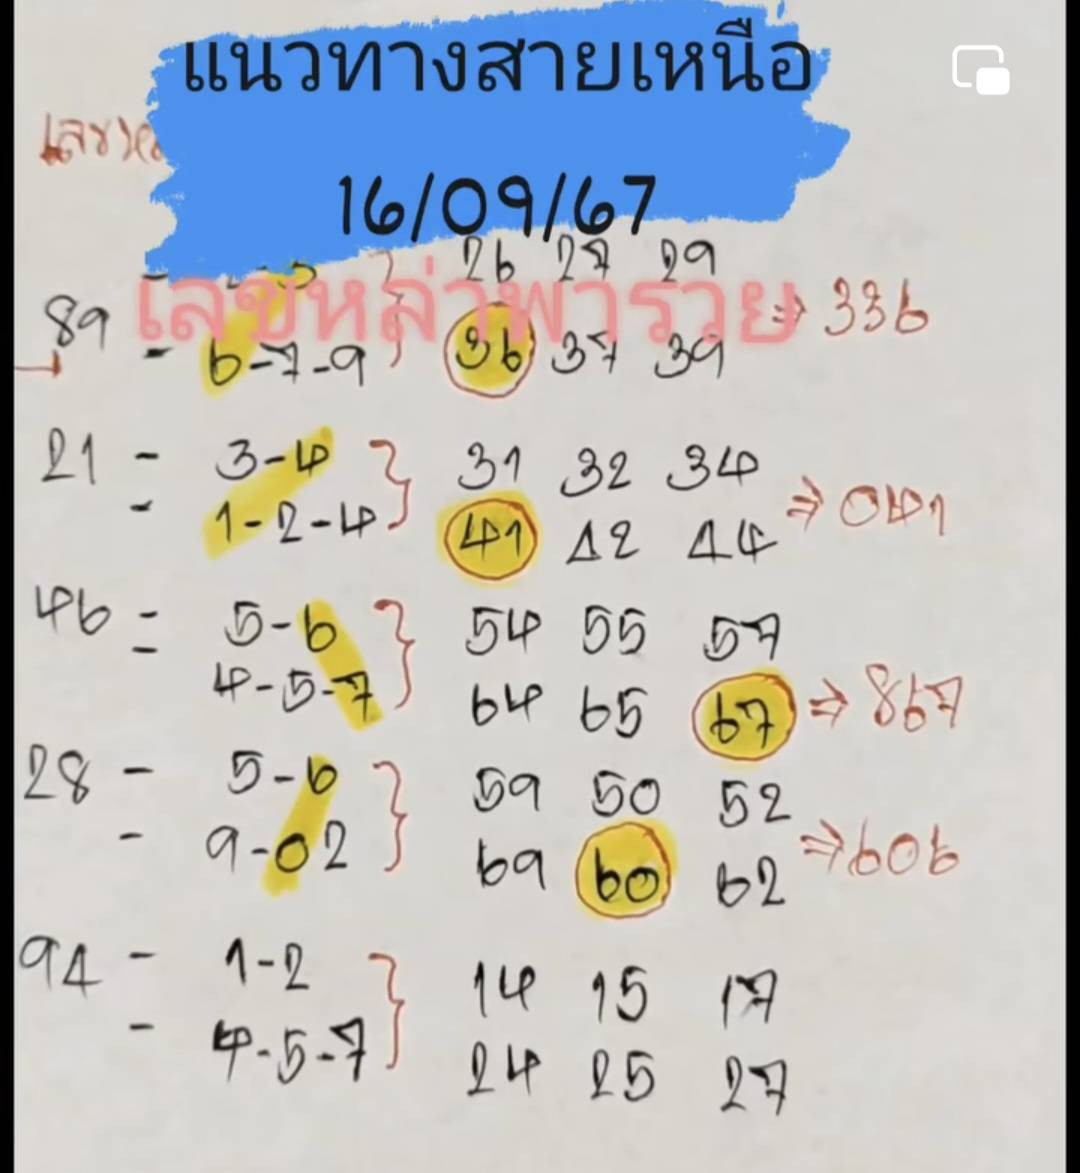 แนวทางสายเหนือ
16/09/67
เลข
26 27 29
เลขหล่าพารวย
89 - 6-7-9 } 36 37 39 ⇒ 336
21 - 3-4 } 31 32 34
- 1-2-4 41 42 44 ⇒ 041
46 - 5-6 } 54 55 57
- 4-5-7 64 65 67 ⇒ 867
28 - 5-6 } 59 50 52
- 9-02 69 60 62 ⇒ 606
94 - 1-2 } 14 15 17
- 4-5-7 24 25 27